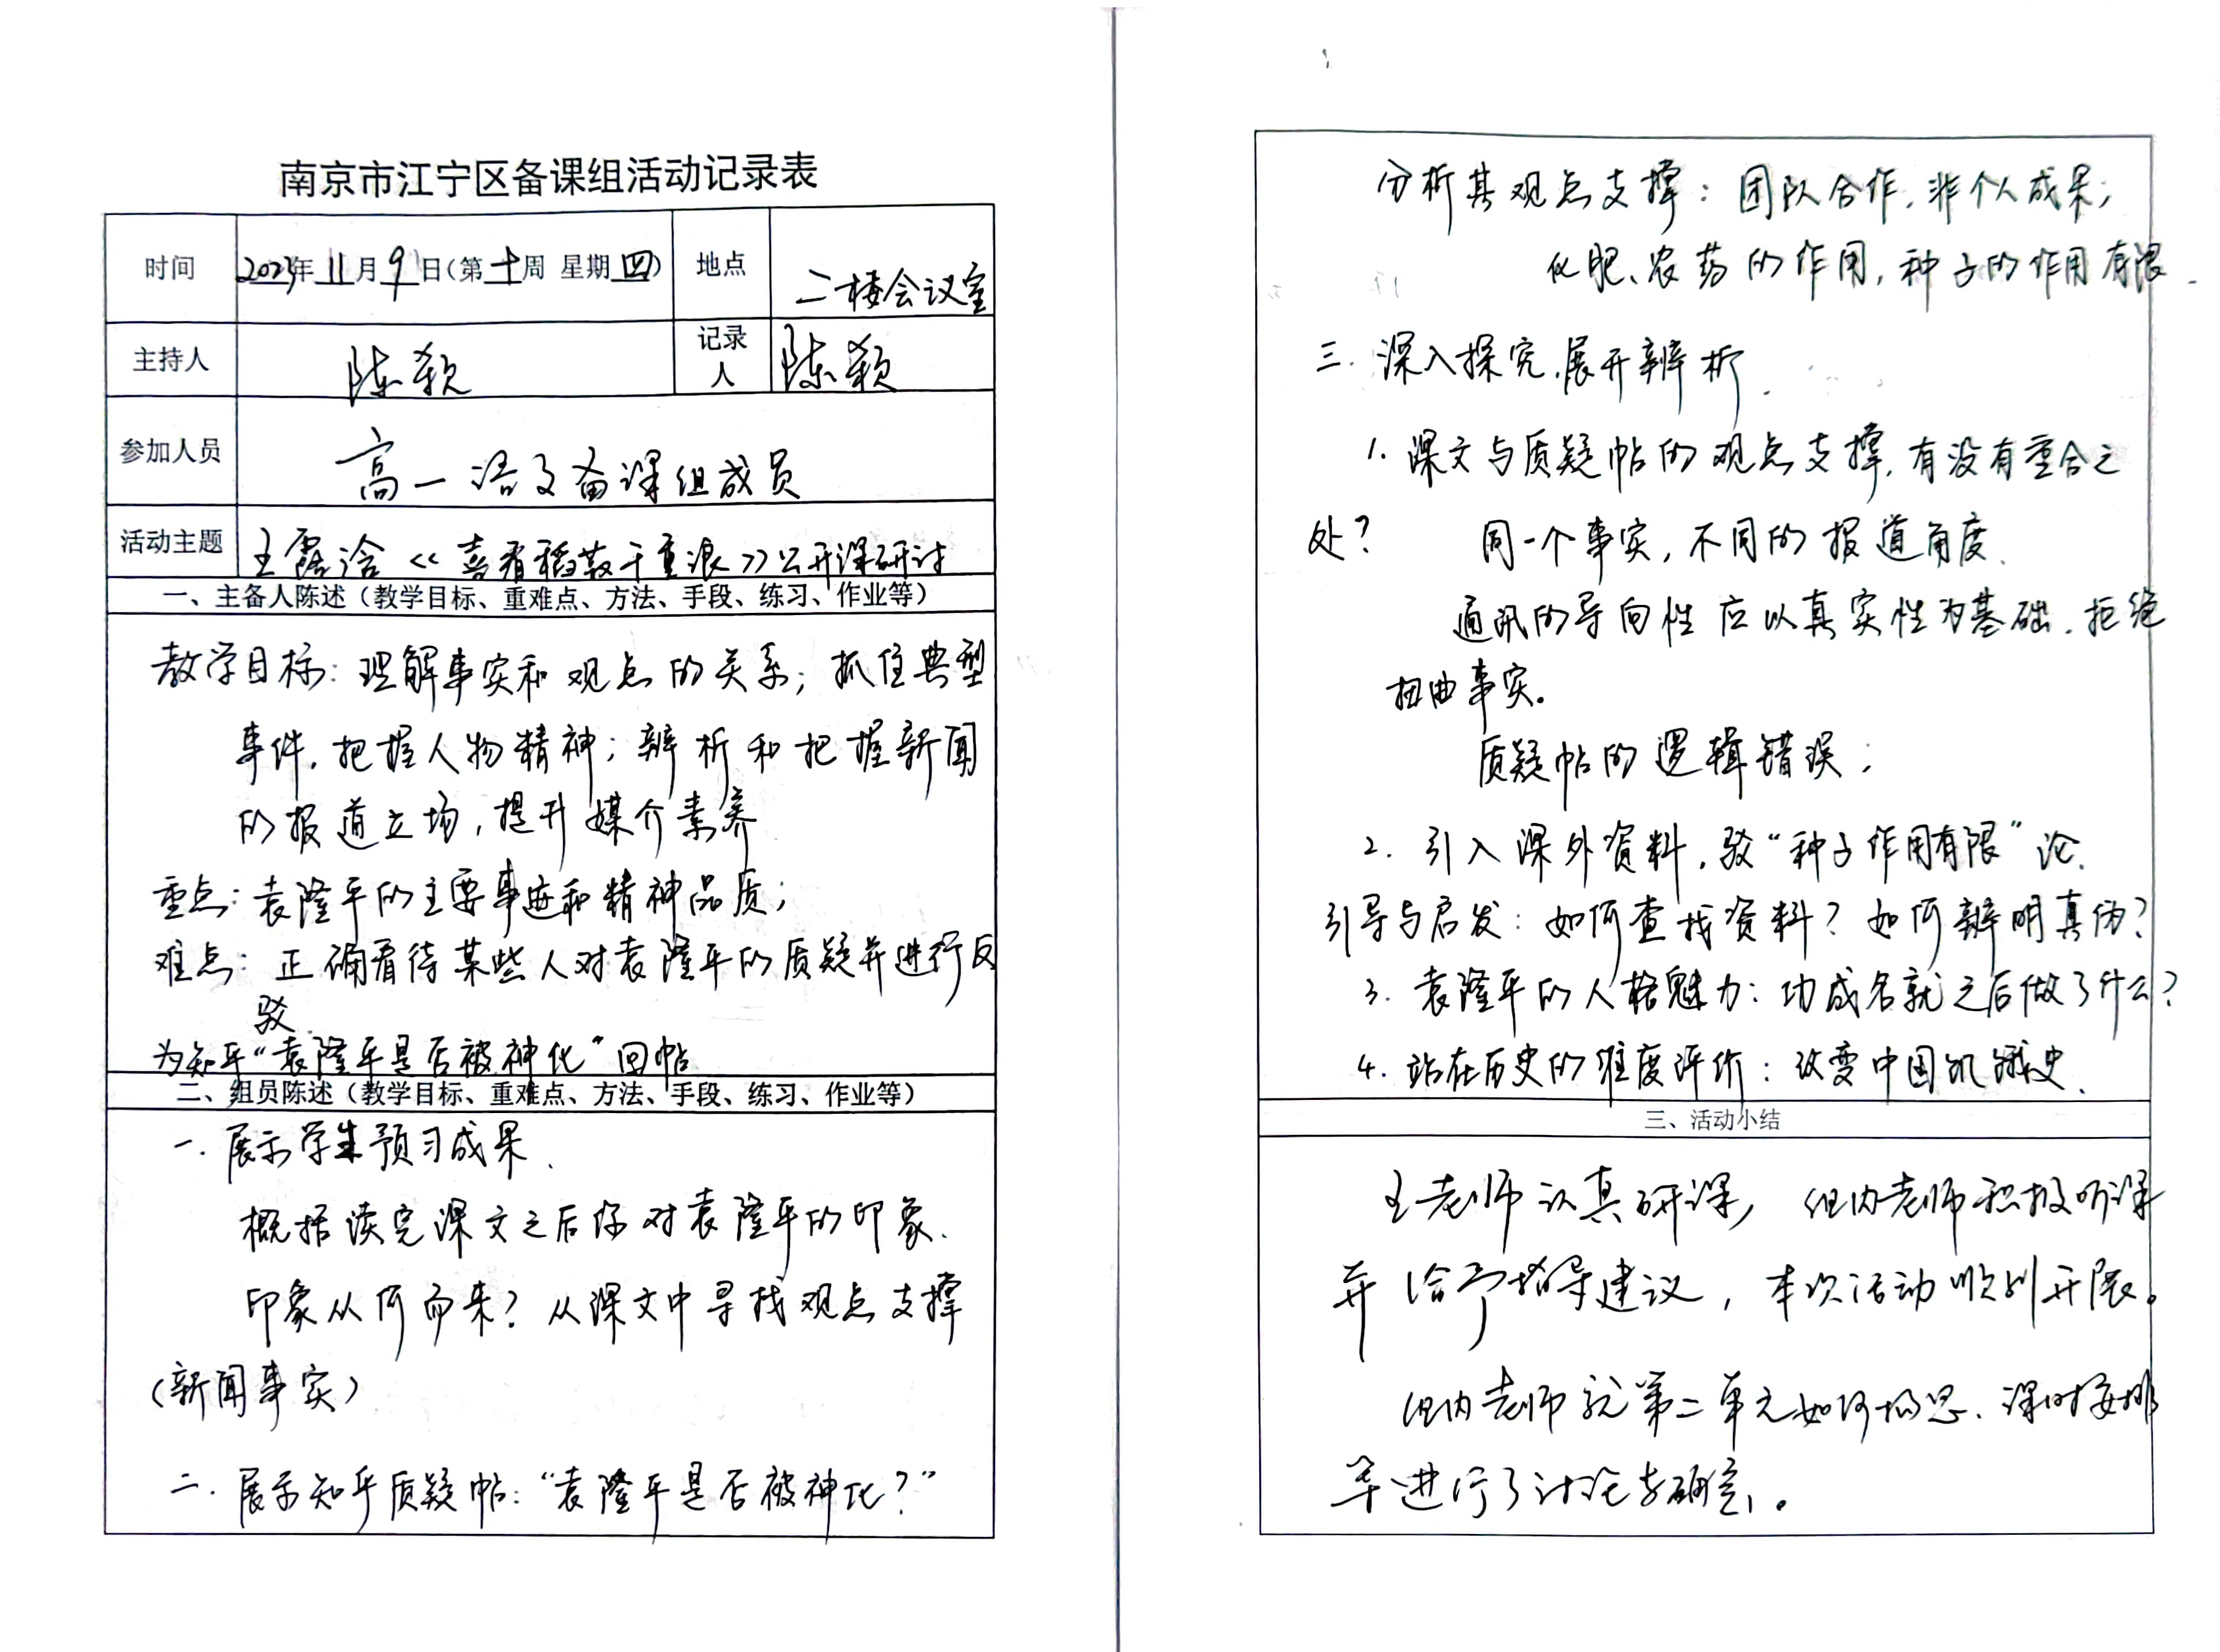 南京市江宁区备课组活动记录表
时间 2023年 11 月 9 日(第 十 周 星期 四) 地点 二楼会议室
主持人 陈颖 记录人 陈颖
参加人员 高一语文备课组成员
活动主题 王露浛《喜看稻菽千重浪》公开课研讨
一、主备人陈述（教学目标、重难点、方法、手段、练习、作业等）
教学目标：理解事实和观点的关系；抓住典型
事件，把握人物精神；辨析和把握新闻
的报道立场，提升媒介素养
重点：袁隆平的主要事迹和精神品质；
难点：正确看待某些人对袁隆平的质疑并进行反
驳.
为知乎“袁隆平是否被神化”回帖
二、组员陈述（教学目标、重难点、方法、手段、练习、作业等）
一. 展示学生预习成果.
概括读完课文之后你对袁隆平的印象.
印象从何而来？从课文中寻找观点支撑
（新闻事实）
二. 展示知乎质疑帖：“袁隆平是否被神化？”
分析其观点支撑：团队合作，非个人成果；
化肥、农药的作用，种子的作用有限.
三. 深入探究，展开辨析.
1. 课文与质疑帖的观点支撑，有没有重合之
处？ 同一个事实，不同的报道角度.
通讯的导向性应以真实性为基础，拒绝
扭曲事实。
质疑帖的逻辑错误；
2. 引入课外资料，驳“种子作用有限”论.
引导与启发：如何查找资料？如何辨明真伪？
3. 袁隆平的人格魅力：功成名就之后做了什么？
4. 站在历史的维度评价：改变中国饥饿史.
三、活动小结
王老师认真研课，组内老师积极听课
并给予指导建议，本次活动顺利开展。
组内老师就第二单元如何构思、课时安排
等进行了讨论与确定。